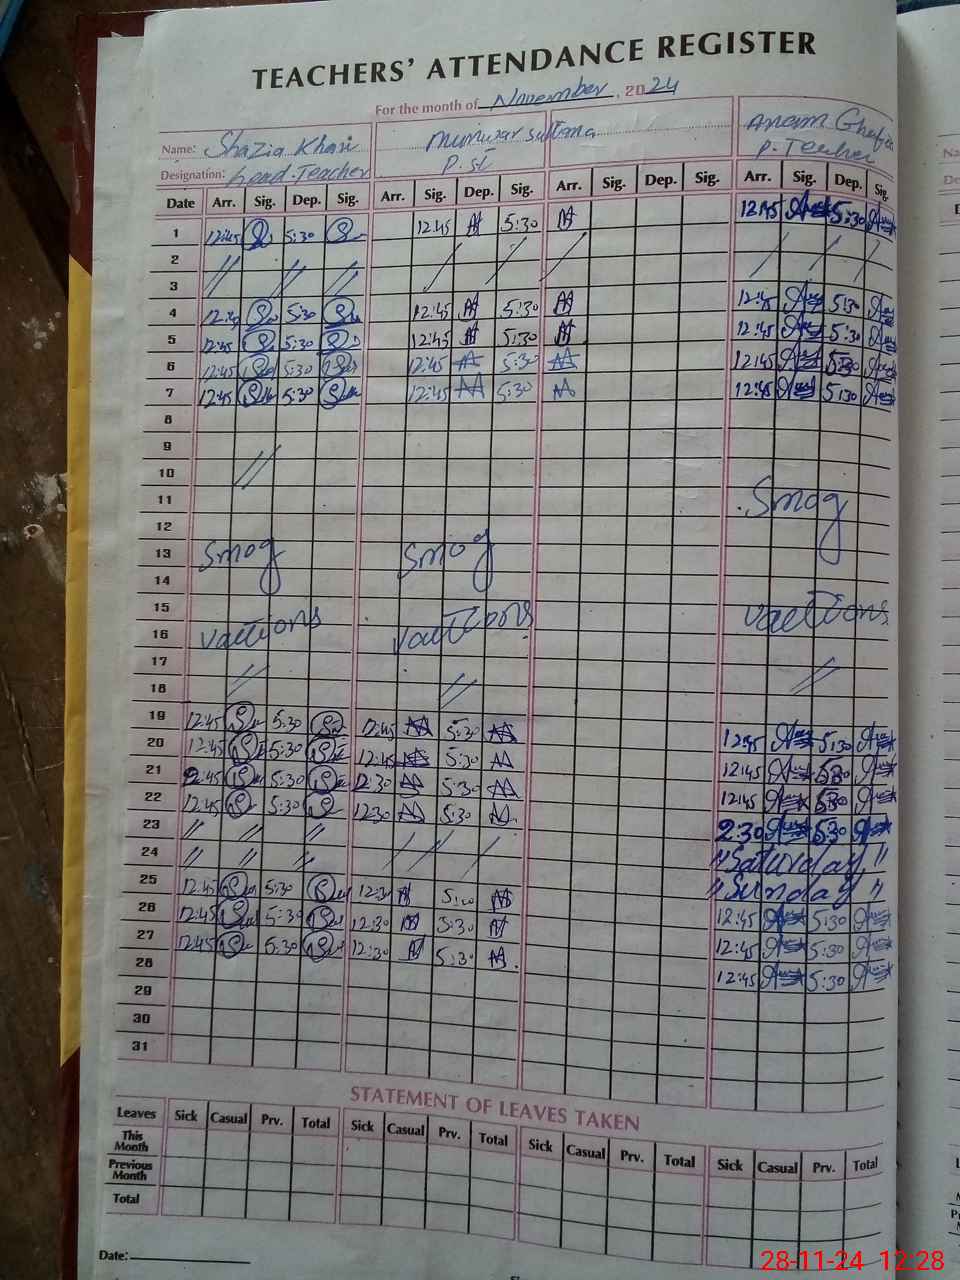 TEACHERS' ATTENDANCE REGISTER
For the month of November, 2024
Name: Shazia Khan Munwar Sultana Anam Ghafir
Designation: Head-Teacher P.St P. Teacher
Date Arr. Sig. Dep. Sig. Arr. Sig. Dep. Sig. Arr. Sig. Dep. Sig. Arr. Sig. Dep. Sig.
1 12:45 5:30 12:45 5:30 12:45 5:30
2
3
4 12:45 5:30 12:45 5:30 12:45 5:30
5 12:45 5:30 12:45 5:30 12:45 5:30
6 12:45 5:30 12:45 5:30 12:45 5:30
7 12:45 5:30 12:45 5:30 12:45 5:30
8
9
10
11 Smog
12
13 smog smog
14
15 vactions
16 vactions vactions
17
18
19 12:45 5:30 12:45 5:30 12:45 5:30
20 12:45 5:30 12:45 5:30 12:45 5:30
21 2:45 5:30 12:30 5:30 12:45 5:30
22 12:45 5:30 12:30 5:30 2:30 5:30
23 "Saturday"
24 "Sunday"
25 12:45 5:30 12:30 12:45 5:30
26 12:45 5:30 12:30 12:45 5:30
27 12:45 5:30 12:30 5:30 12:45 5:30
28
29
30
31
STATEMENT OF LEAVES TAKEN
Leaves Sick Casual Prv. Total Sick Casual Prv. Total Sick Casual Prv. Total Sick Casual Prv. Total
This Month
Previous Month
Total
Date:
28-11-24 12:28